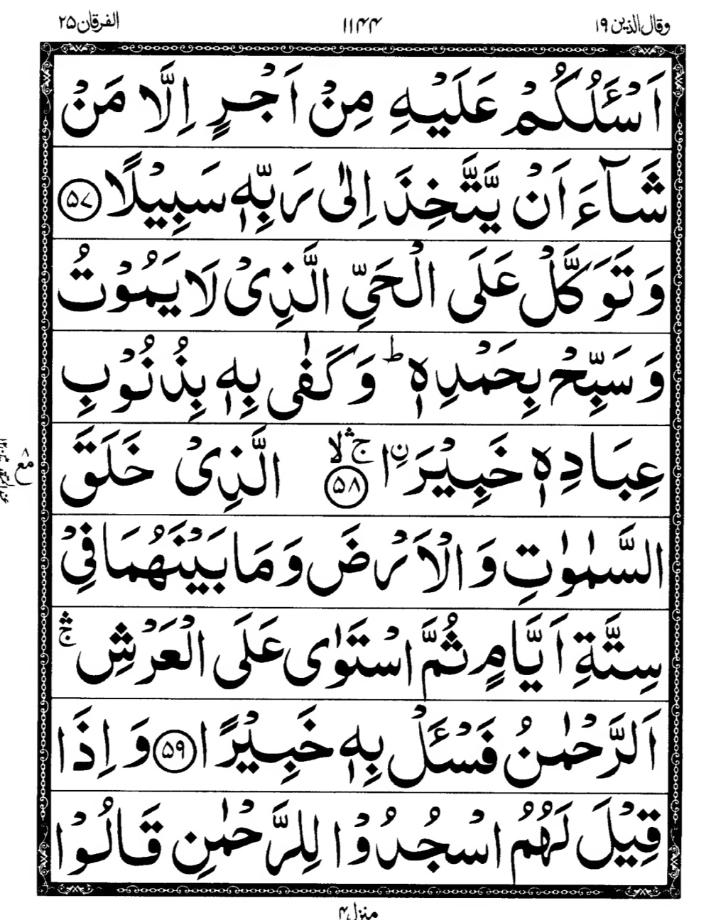 وقال الذین ۱۹ ۱۱۴۴ الفرقان ۲۵
اَسْـَٔلُكُمْ عَلَیْهِ مِنْ اَجْرٍ اِلَّا مَنْ
شَآءَ اَنْ یَّتَّخِذَ اِلٰی رَبِّهٖ سَبِیْلًا ۵۷
وَ تَوَكَّلْ عَلَی الْحَیِّ الَّذِیْ لَا یَمُوْتُ
وَ سَبِّحْ بِحَمْدِهٖ ؕ وَ كَفٰی بِهٖ بِذُنُوْبِ
عِبَادِهٖ خَبِیْرَاۨ ۵۸ ۚۛ ۙ الَّذِیْ خَلَقَ
مع
السَّمٰوٰتِ وَ الْاَرْضَ وَ مَا بَیْنَهُمَا فِیْ
سِتَّةِ اَیَّامٍ ثُمَّ اسْتَوٰی عَلَی الْعَرْشِ ۚۛ
اَلرَّحْمٰنُ فَسْـَٔلْ بِهٖ خَبِیْرًا ۵۹ وَ اِذَا
قِیْلَ لَهُمُ اسْجُدُوْا لِلرَّحْمٰنِ قَالُوْا
منزل ۴